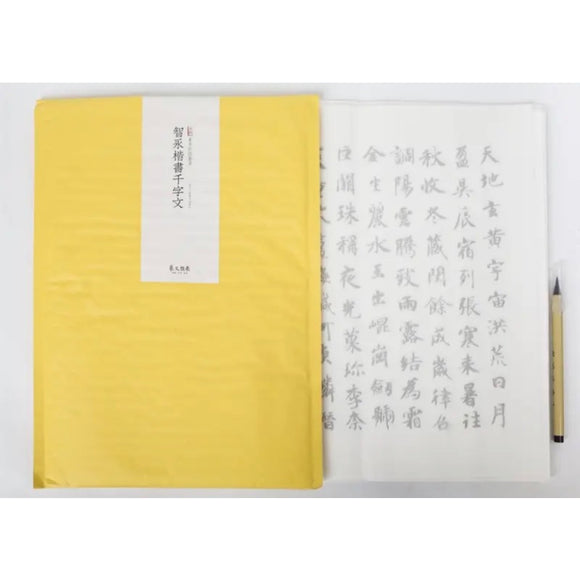 智永楷書千字文
天地玄黃宇宙洪荒日月
盈昃辰宿列張寒來暑往
秋收冬藏閏餘成歲律呂
調陽雲騰致雨露結為霜
金生麗水玉出崐崗劍號
巨闕珠稱夜光菓珍李柰
海鹹河淡鱗潛